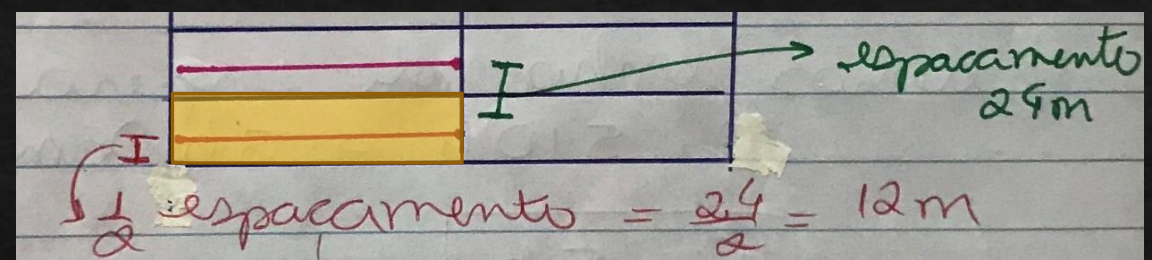 espacamento
24m
1/2 espacamento = 24/2 = 12m